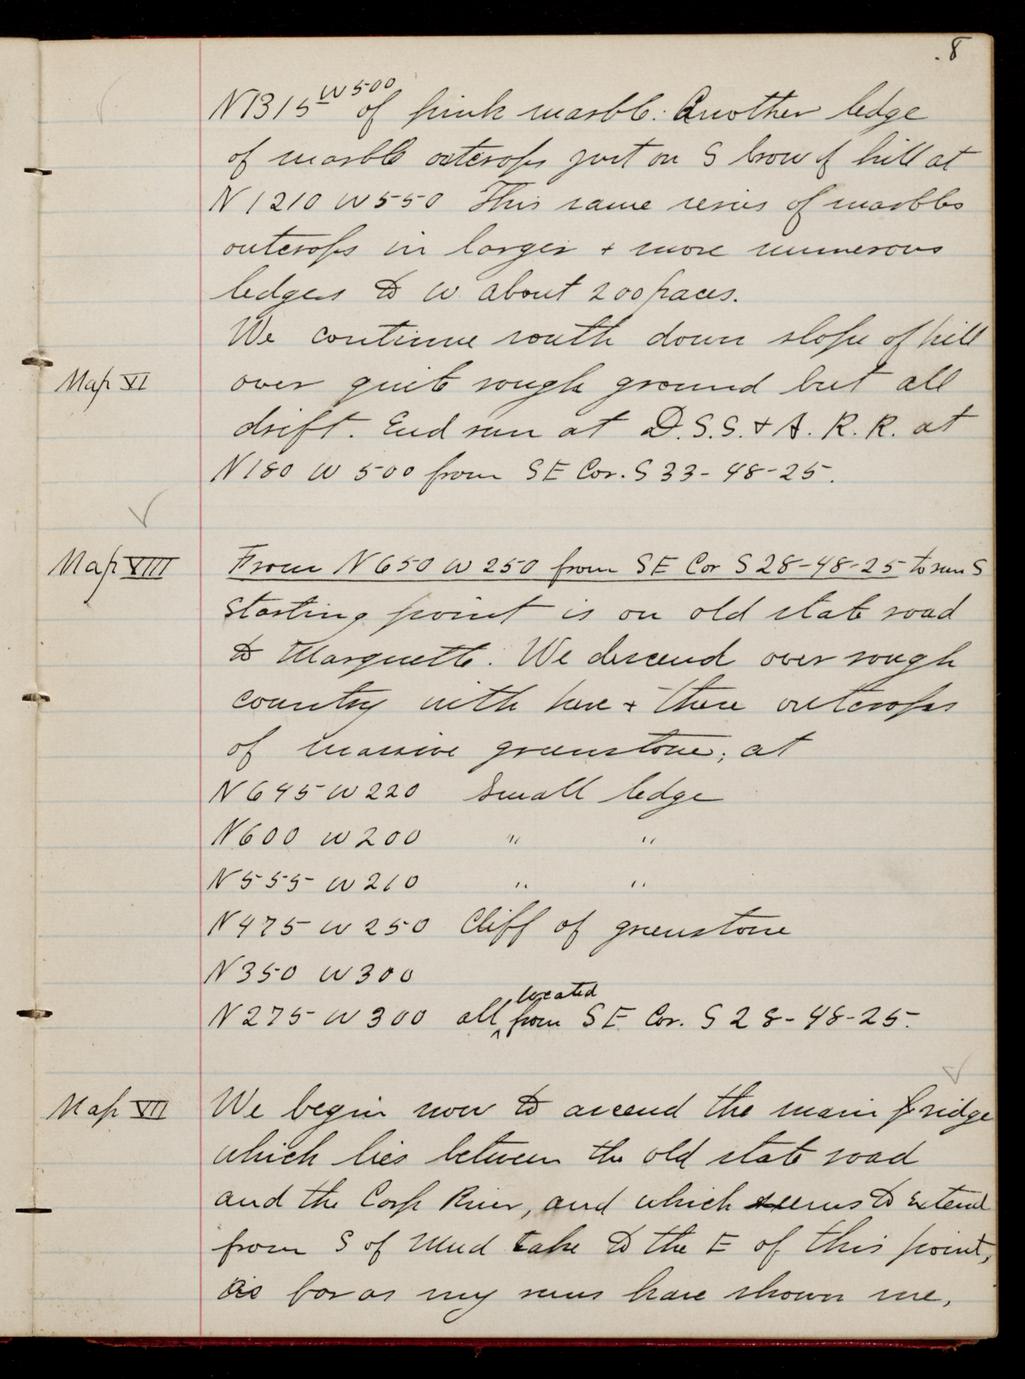 8
N1315 W500 of pink marble. Another ledge
of marble outcrops just on S brow of hill at
N1210 W550 This same series of marbles
outcrops in larger + more numerous
ledges to W about 200 paces.
We continue south down slope of hill
Map VI over quite rough ground but all
drift. End run at D.S.S. & A. R. R. at
N180 W500 from SE Cor. S33-48-25.
Map VIII From N650 W250 from SE Cor S28-48-25 to run S
Starting point is on old state road
to Marquette. We descend over rough
country with here + there outcrops
of massive greenstone; at
N645 W220 Small ledge
N600 W200 " "
N555 W210 " "
N475 W250 Cliff of greenstone
N350 W300
N275 W300 all located from SE Cor. S28-48-25.
Map VII We begin now to ascend the main ridge
which lies between the old state road
and the Carp River, and which seems to extend
from S of Mud Lake to the E of this point,
as far as my runs have shown me.